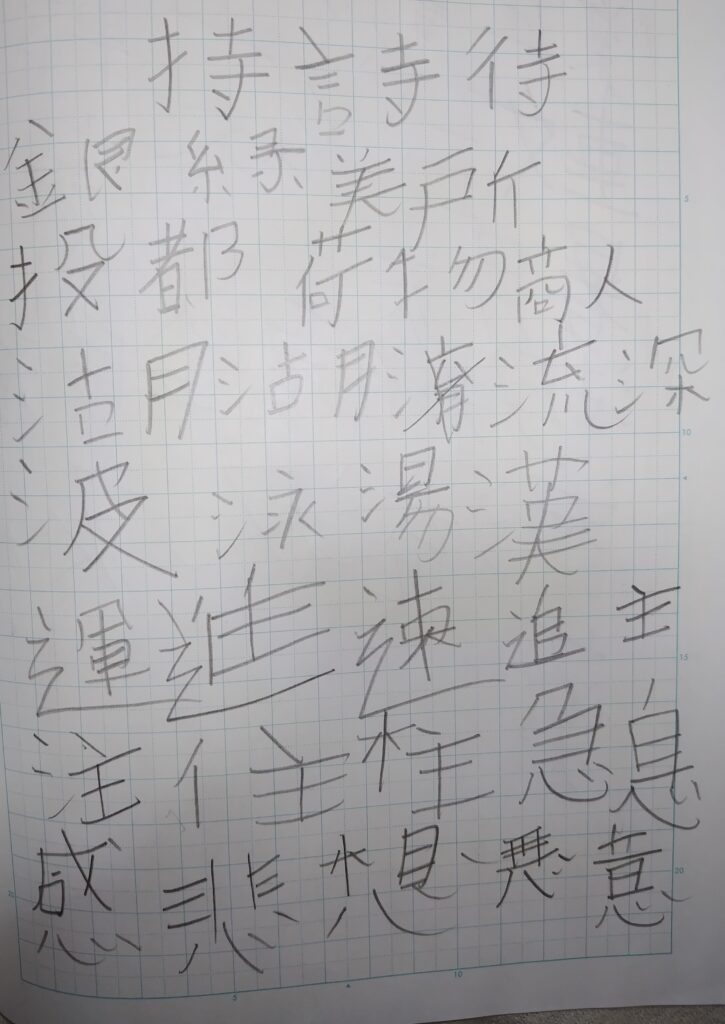 持詩待
銀緑美所
投都荷物商人
湖湖流深
波泳湯漢
運進速追主
注住柱急息
感悲想悪意